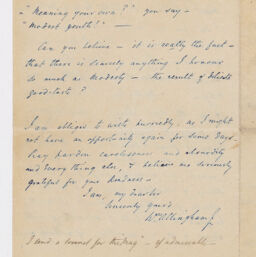 "Meaning your own?" you say —
"Modest youth!" —
Can you believe — it is really the fact —
that there is scarcely anything I honour
so much as Modesty — the result of delicate
good-taste?
I am obliged to write hurriedly, as I might
not have an opportunity again for some days
Pray pardon carelessness and
and everything else, & believe me seriously
grateful for your kindness —
I am, my dear Sir
Sincerely yours
Wm Allingham
I send a sonnet for the "Mag" — if admissible —